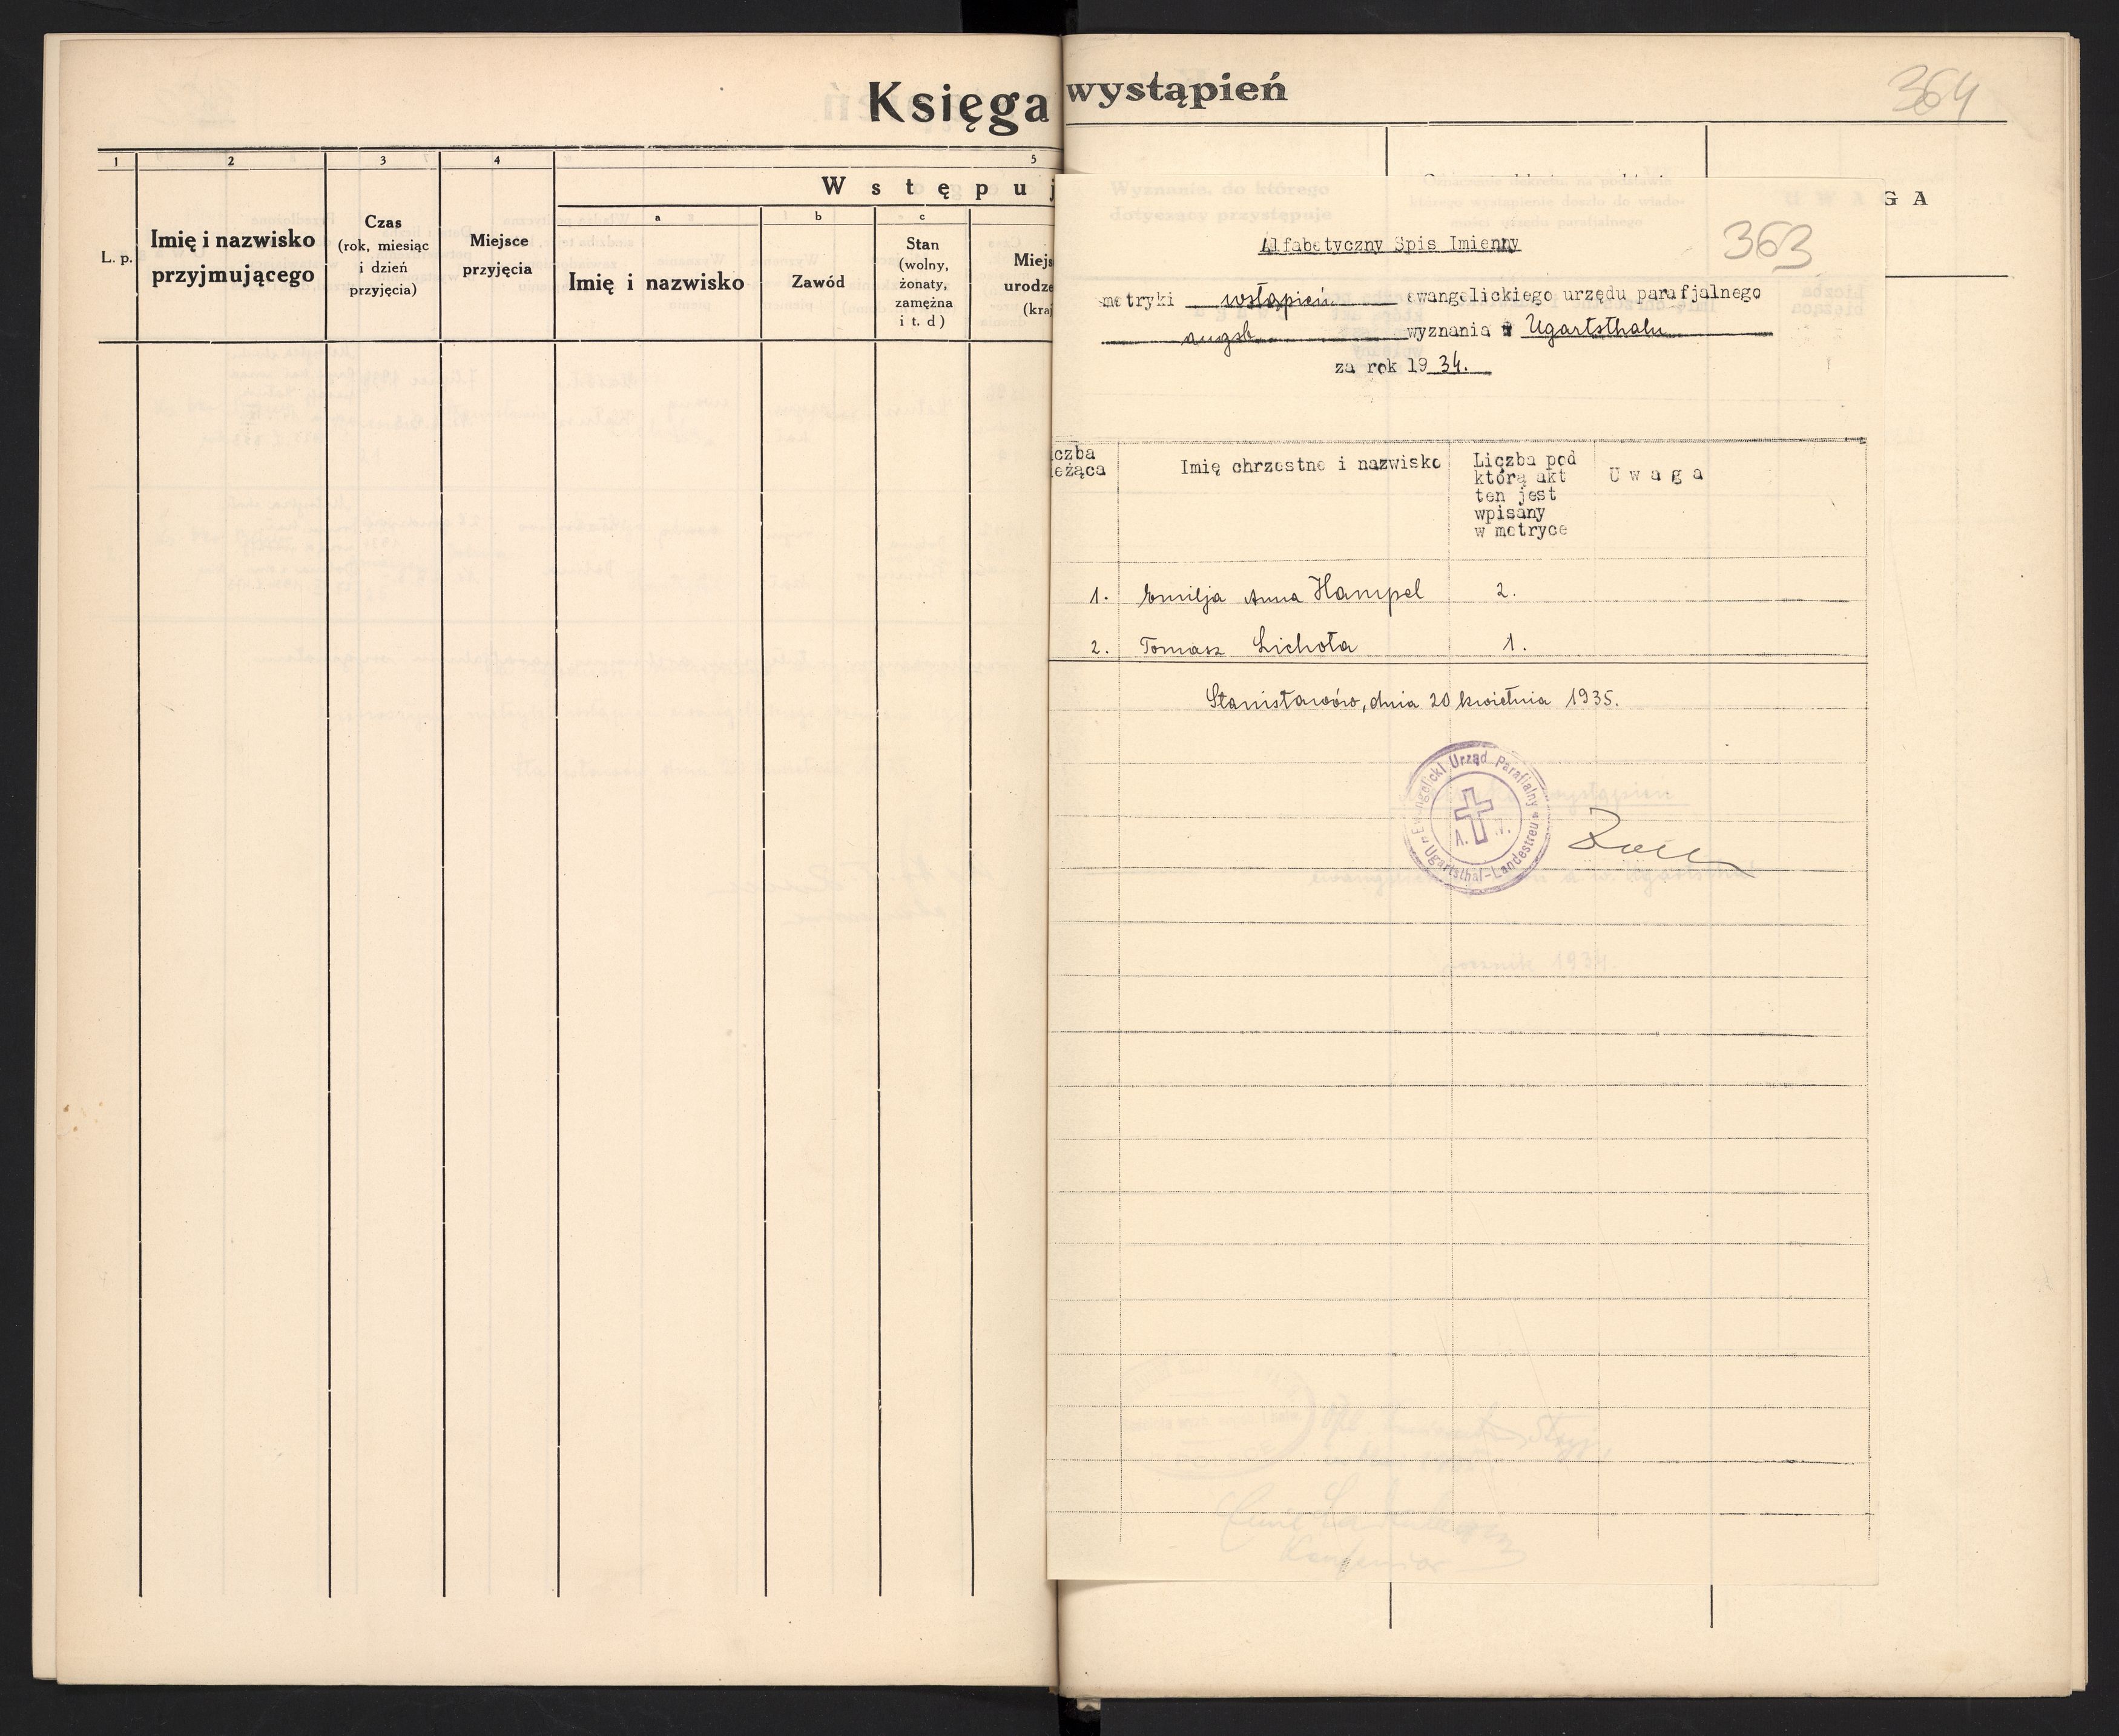 Księga
1 2 3 4 5
W s t ę p u j
a b c
L. p.
Imię i nazwisko
przyjmującego
Czas
(rok, miesiąc
i dzień
przyjęcia)
Miejsce
przyjęcia
Imię i nazwisko
Zawód
Stan
(wolny,
żonaty,
zamężna
i t. d)
Miejs
urodze
(kraj
wystąpień
364
G A
363
Alfabetyczny Spis Imienny
metryki wstąpień ewangelickiego urzędu parafjalnego
augsb. wyznania w Ugartsthalu
za rok 1934.
iczba
ieżąca
Imię chrzestne i nazwisko
Liczba pod
którą akt
ten jest
wpisany
w metryce
U w a g a
1. Emilja Anna Hampel 2.
2. Tomasz Lichota 1.
Stanisławów, dnia 20 kwietnia 1935.
Ewangelicki Urząd Parafialny
A. W.
Ugartsthal-Landestreu
rocznik 1934.